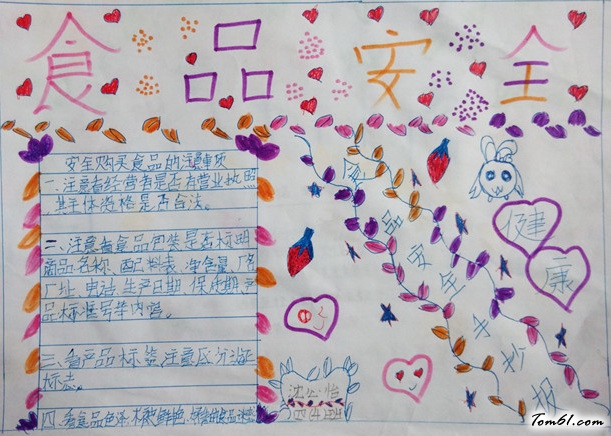 食品安全
安全购买食品的注意事项
一、注意看经营者是否有营业执照
其主体资格是否合法。
二、注意看食品包装是否标明
商品名称、配料表、净含量、厂名
厂址、电话、生产日期、保质期、产
品标准号等内容。
三、看产品标签,注意区分认证
标志。
四、看食品色泽,
食品安全手抄报
健
康
四
Tom61.com